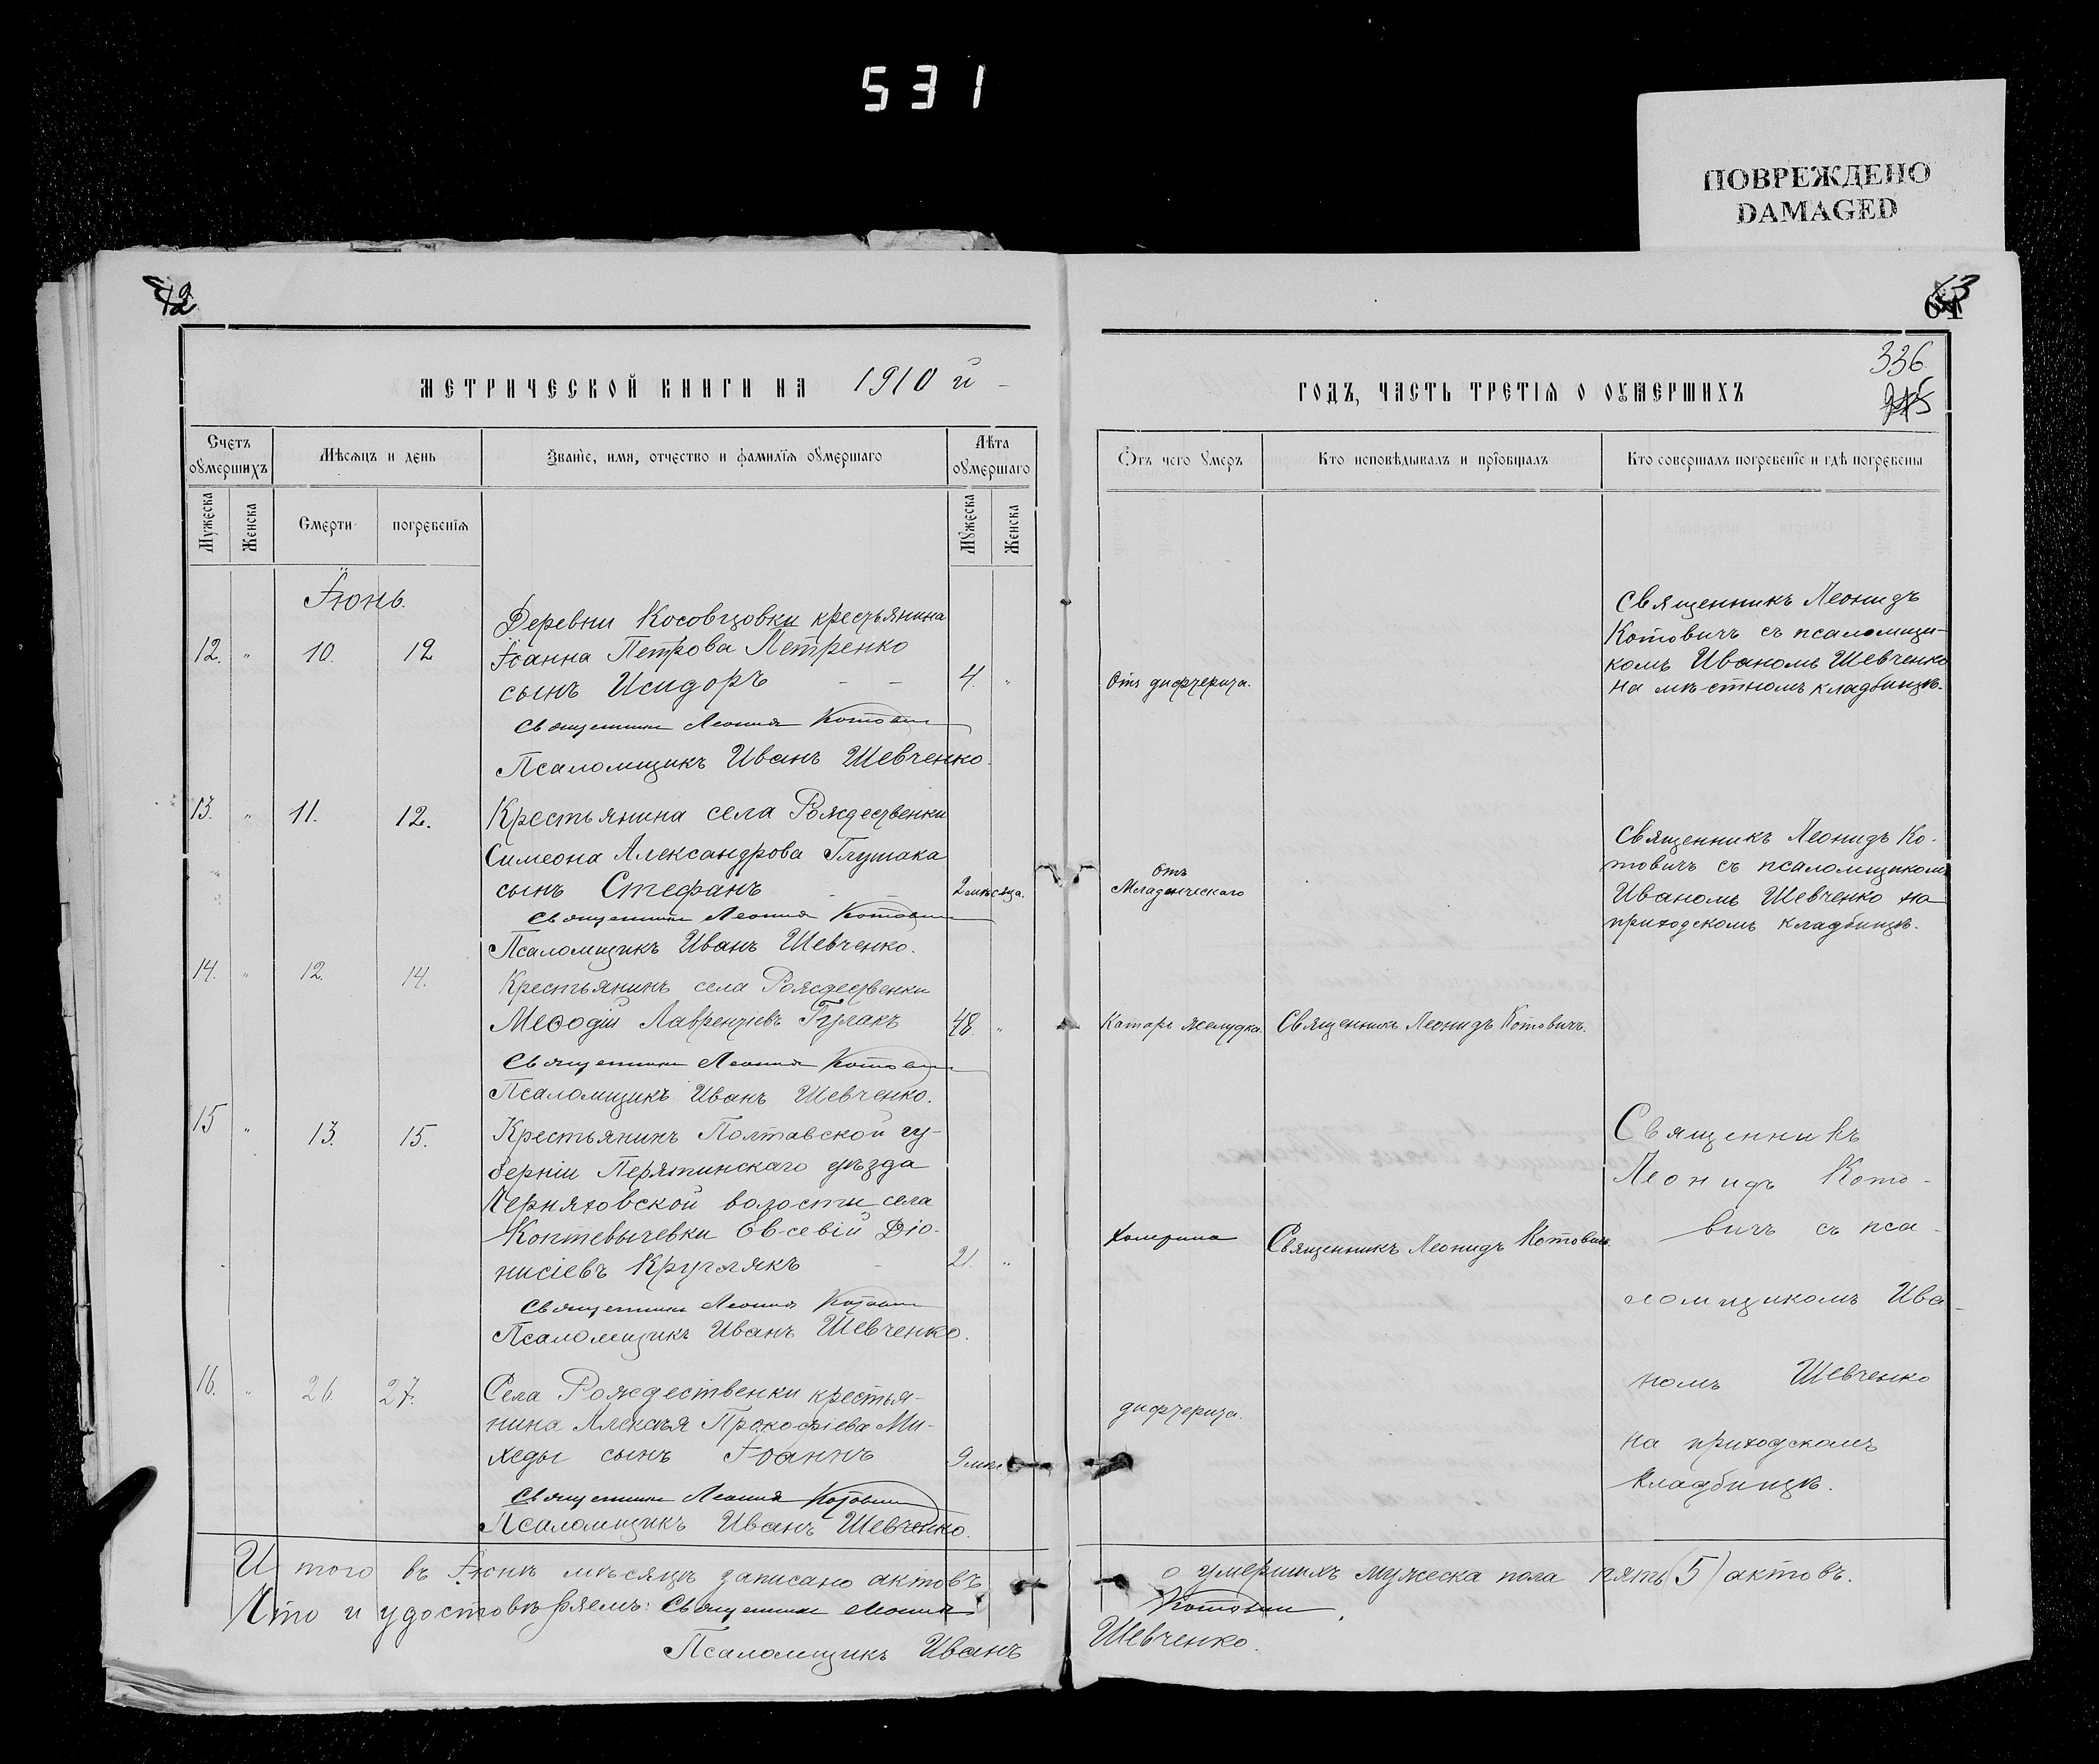 531
ПОВРЕЖДЕНО
DAMAGED
336
МЕТРИЧЕСКОЙ КНИГИ НА 1910 й
Счетъ оумершихъ
Мѣсяцъ и день
Званіе, имя, отчество и фамилія оумершаго
Лѣта оумершаго
Мужеска
Женска
Смерти
погребенія
Мужеска
Женска
Іюнь.
Деревни Косовцовки крестьянина
12. " 10. 12 Іоанна Петрова Петренко
сынъ Исидоръ – – 4. "
Священникъ Леонид Котович
Псаломщикъ Иванъ Шевченко.
13. " 11. 12. Крестьянина села Рождественки
Симеона Александрова Глушака
сынъ Стефанъ 2 мѣсяца.
Священникъ Леонид Котович
Псаломщикъ Иванъ Шевченко.
14. " 12. 14. Крестьянинъ села Рождественки
Меѳодій Лаврентіевъ Гулакъ 48. "
Священникъ Леонид Котович
Псаломщикъ Иванъ Шевченко.
15 " 13. 15. Крестьянинъ Полтавской гу-
берніи Пирятинскаго уѣзда
Черняховской волости села
Евсевій Діо-
нисіевъ Круглякъ – 21. "
Священникъ Леонид Котович
Псаломщикъ Иванъ Шевченко.
16. " 26. 27. Села Рождественки крестья-
нина Алексѣя Прокофіева Ми-
хеды сынъ Іоаннъ 9 мѣс
Священникъ Леонид Котович
Псаломщикъ Иванъ Шевченко.
Итого въ Іюнѣ мѣсяцѣ записано актовъ
Что и удостовѣряемъ: Священникъ Леонид
Псаломщикъ Иванъ
ГОДЪ, ЧАСТЬ ТРЕТІЯ О ОУМЕРШИХЪ
Отъ чего умеръ
Кто исповѣдывалъ и пріобщалъ
Кто совершалъ погребеніе и гдѣ погребены
Священникъ Леонидъ
Котовичъ съ псаломщи-
комъ Иваномъ Шевченко
Отъ дифтерита. на мѣстномъ кладбищѣ.
Священникъ Леонидъ Ко-
товичъ съ псаломщикомъ
Отъ
Младенческаго
Иваномъ Шевченко на
приходскомъ кладбищѣ.
Катаръ желудка. Священникъ Леонидъ Котовичъ.
Священникъ
Леонидъ Кото-
вичъ съ пса-
Холерина Священникъ Леонидъ Котовичъ.
ломщикомъ Ива-
номъ Шевченко
дифтерита.
на приходскомъ
кладбищѣ.
о умершихъ мужеска пола пять (5) актовъ.
Котович.
Шевченко.